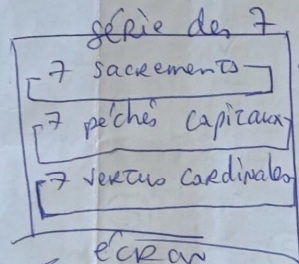 série des 7
7 sacrements
7 péchés capitaux
7 vertus cardinales
écran